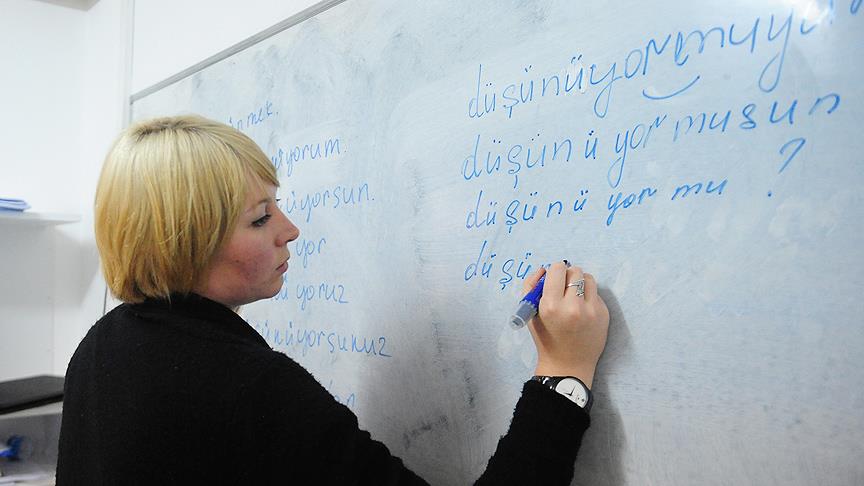 yorum.
üyorsun.
yor
yoruz
nüyorşunuz
düşünüyormuyu
düşünüyormusun
düşünüyor mu ?
düşün